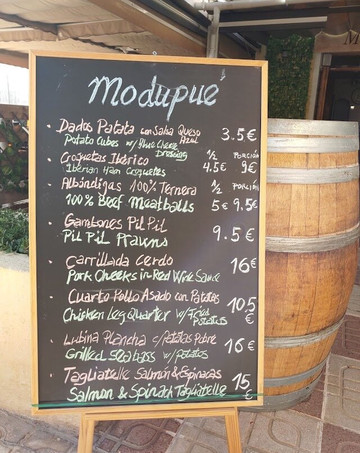 Modupue
· Dados Patata con Salsa Queso Azul 3.5€
Potato Cubes w/Blue Cheese Dressing
· Croquetas Ibérico 1/2 PORCIÓN
Iberian Ham Croquettes 4.5€ 9€
· Albóndigas 100% Ternera 1/2 PORCIÓN
100% Beef Meatballs 5€ 9.5€
· Gambones Pil Pil
Pil Pil Prawns 9.5€
· Carrillada Cerdo 16€
Pork Cheeks in Red Wine Sauce
· Cuarto Pollo Asado con Patatas 10.5€
Chicken Leg Quarter w/Fried Potatoes
· Lubina Plancha c/patatas Pobre 16€
Grilled Seabass w/potatoes
· Tagliatelle Salmón & Espinacas 15€
Salmon & Spinach Tagliatelle
M